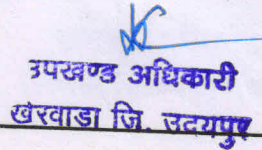 उपखण्ड अधिकारी
खेरवाडा जि. उदयपुर